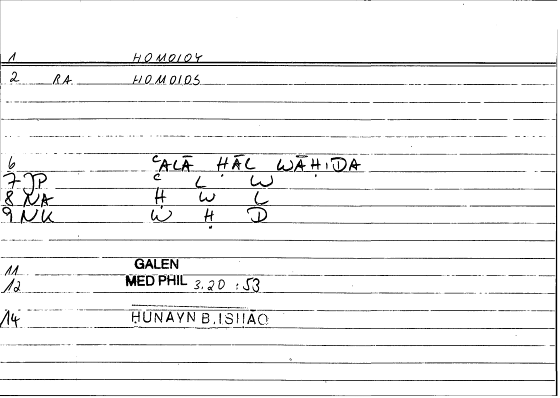 1 HOMOIOY
2 RA HOMOIOS
6 ʿALĀ ḤĀL WĀḤIDA
7 JP ʿ L W
8 NA Ḥ W L
9 NK W Ḥ D
11 GALEN
12 MED PHIL 3.20 :53
14 HUNAYN B.ISHAQ